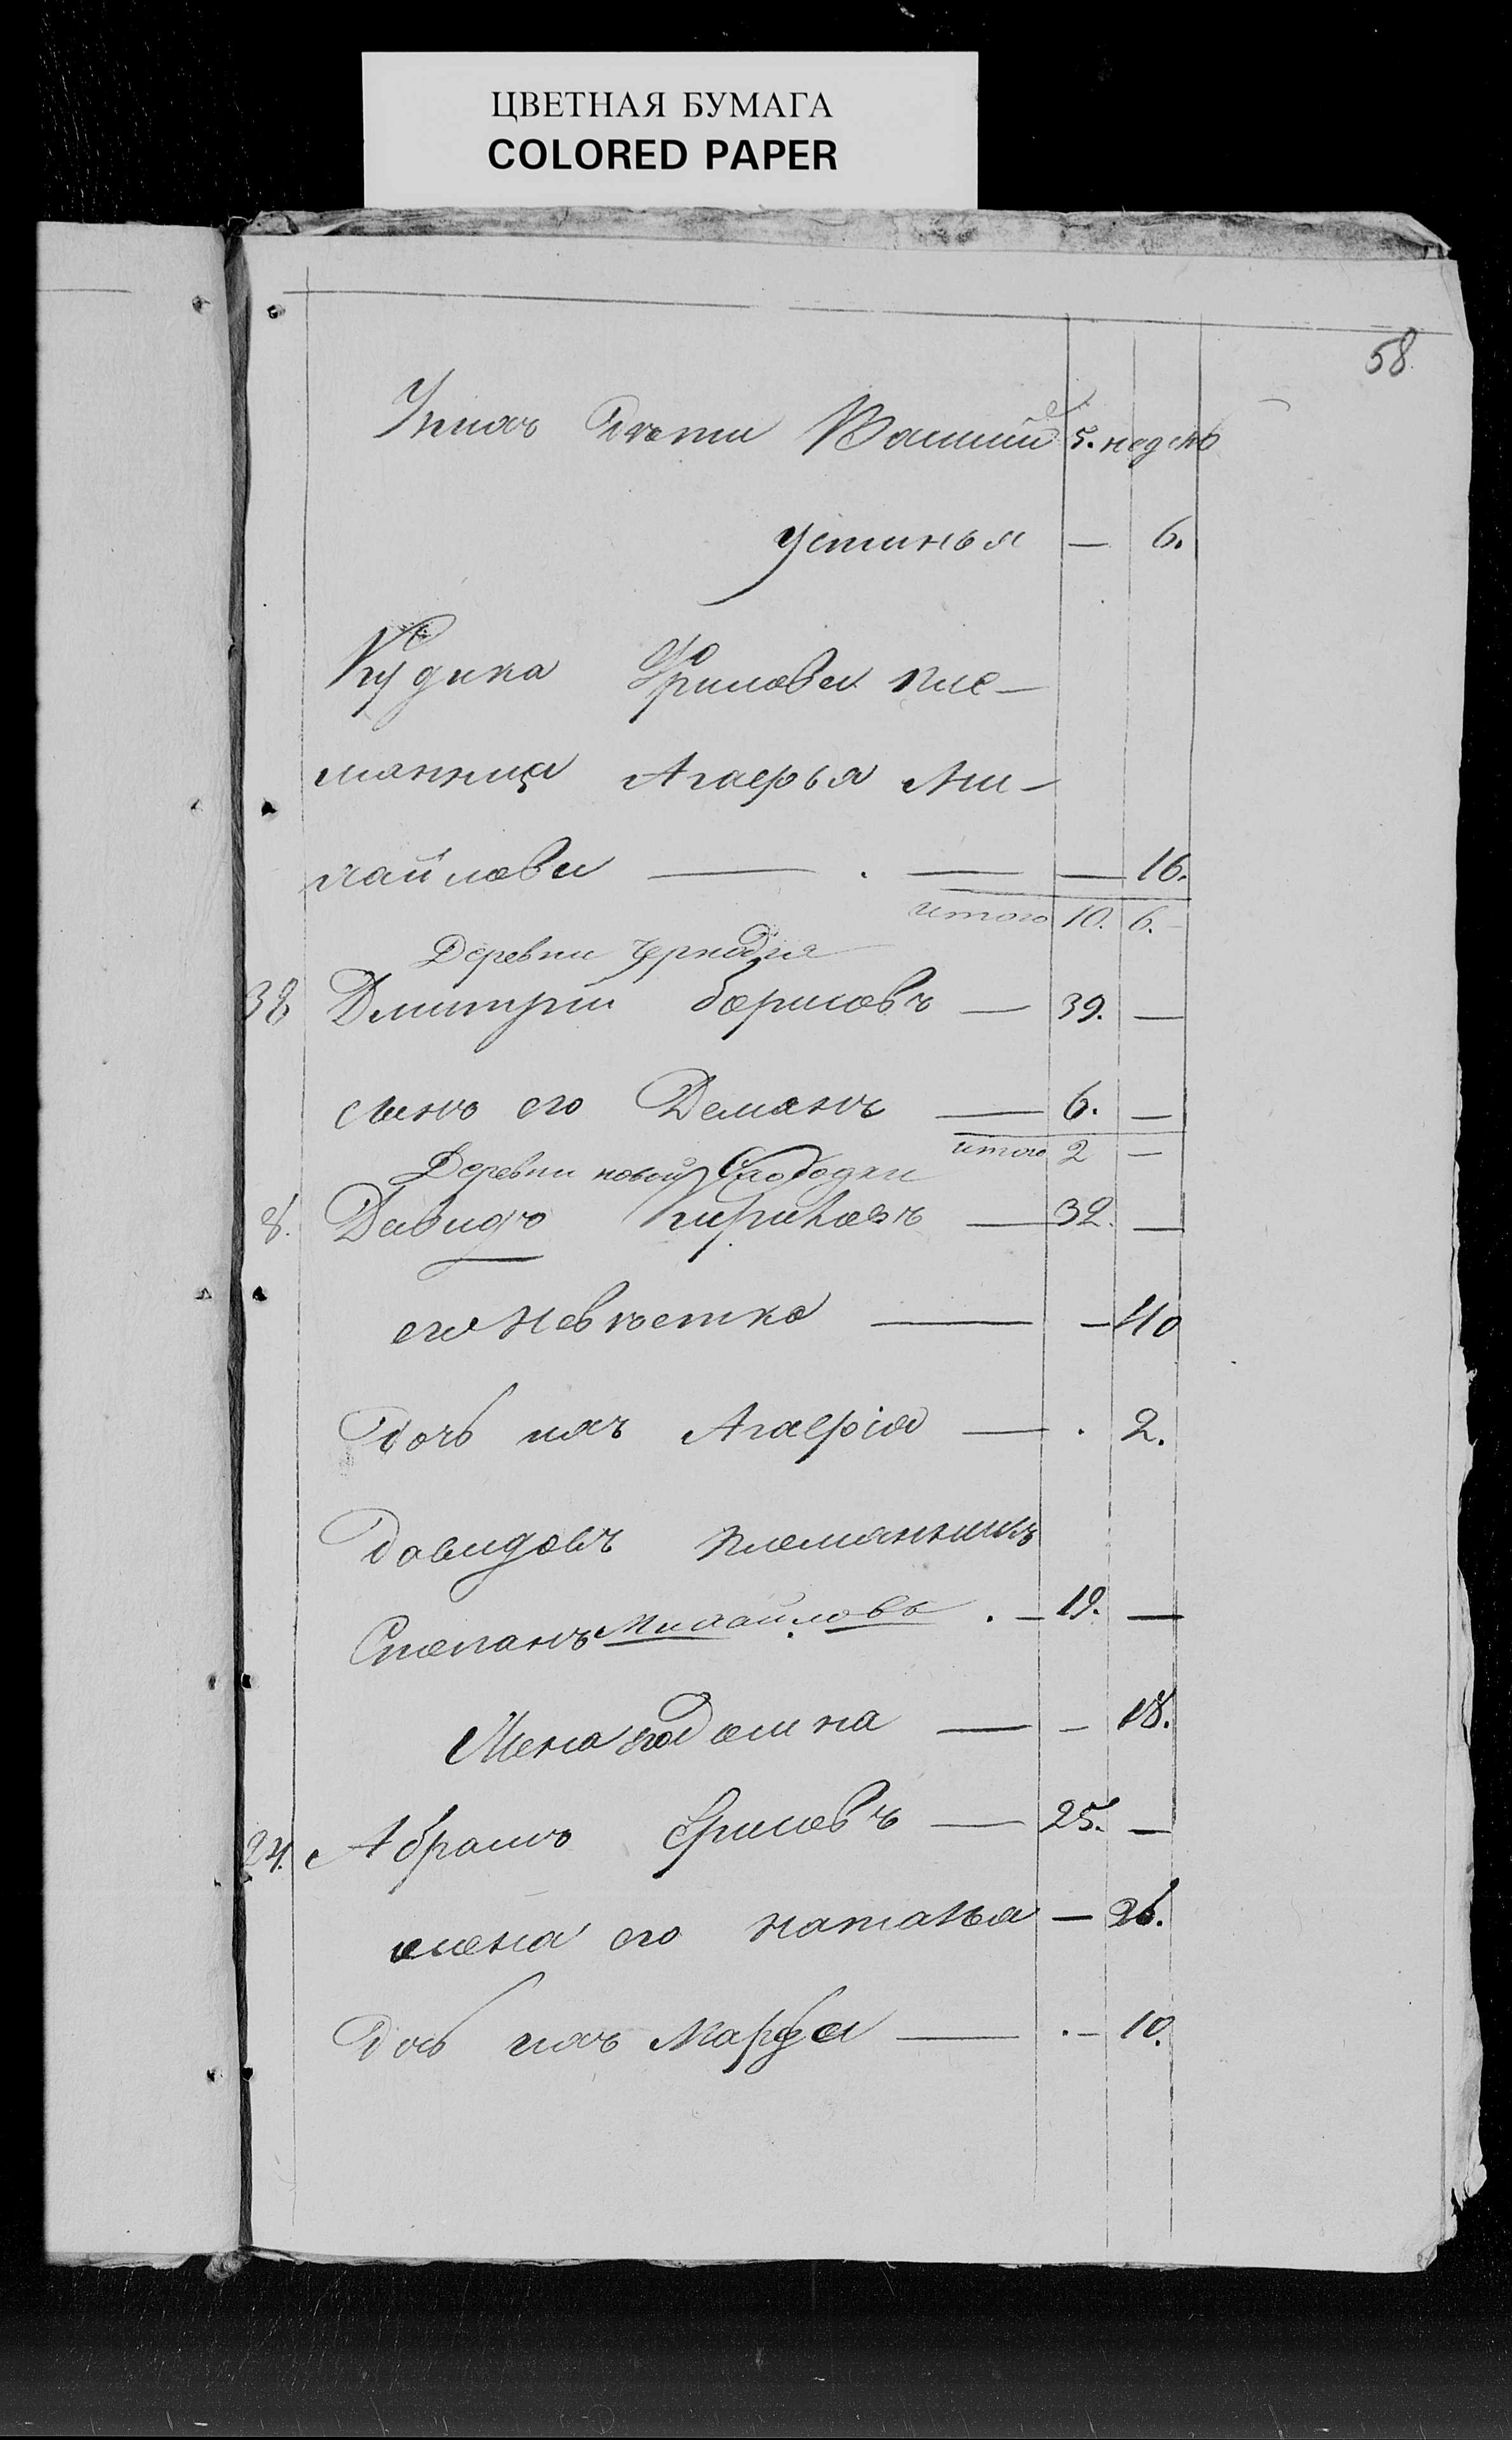 ЦВЕТНАЯ БУМАГА
COLORED PAPER
58
У нихъ Дѣти Василий 5. недель
Устинья — 6.
Кудина Ефимова пле-
мянница Агафья Ми-
хайлова — . — — 16.
итого 10. 6.
Деревни
38 Дмитрій борисовъ — 39. —
сынъ его Демянъ — 6. —
итого 2 —
Деревни новой Слободки
8. Давидъ Кириловъ — 32. —
его Невѣстка — — 40
Дочь ихъ Агафія — . 2.
Давидовъ племянникъ
Степанъ Михайловъ . — 19. —
Жена его Домна — — 18.
24. Абрамъ Ефимовъ — 25. —
жена его Наталья — 26.
Дочь ихъ Марфа — . — 10.